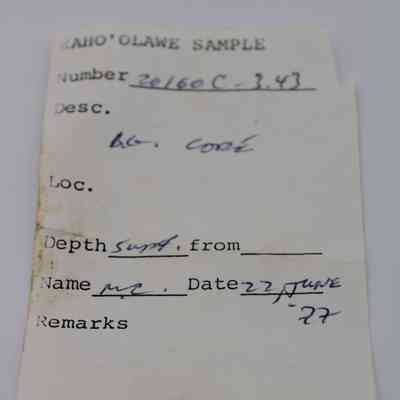 KAHO'OLAWE SAMPLE
Number 20160C-3.43
Desc.
CORE
Loc.
Depth Surf. from
Name M.C. Date 22 JUNE
'77
Remarks